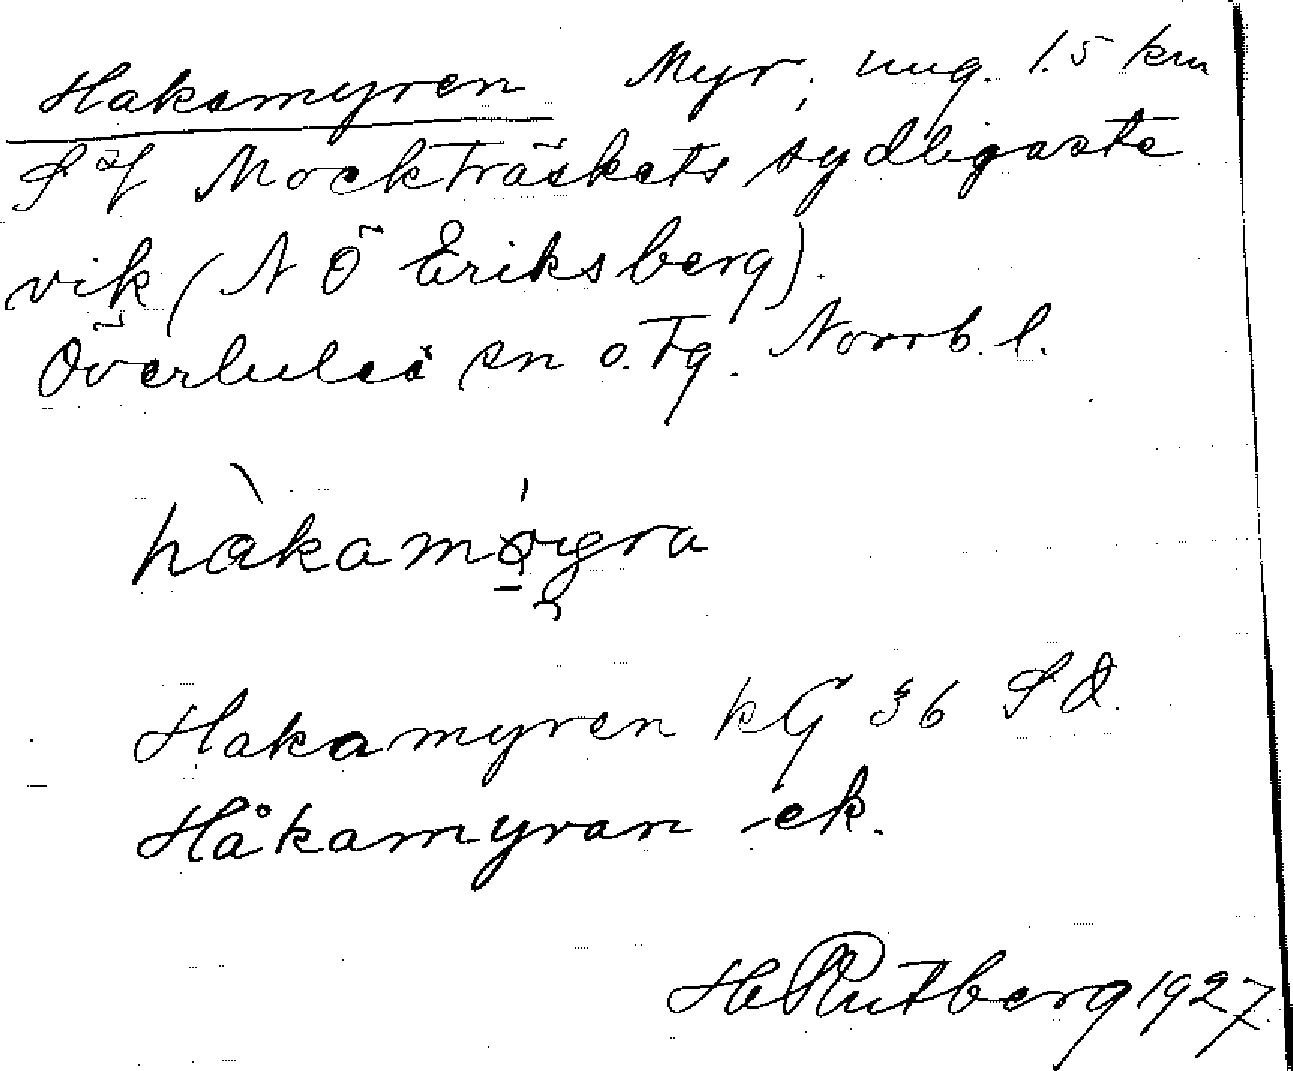 Hakamyren Myr, ung. 1.5 km
S of Mockträskets sydligaste
vik (N Ö Eriksberg).
Överluleå sn o. tg. Norrb. l.
hàkamøyra
Hakamyren kG 36 SO.
Håkamyran ek.
H Rutberg 1927